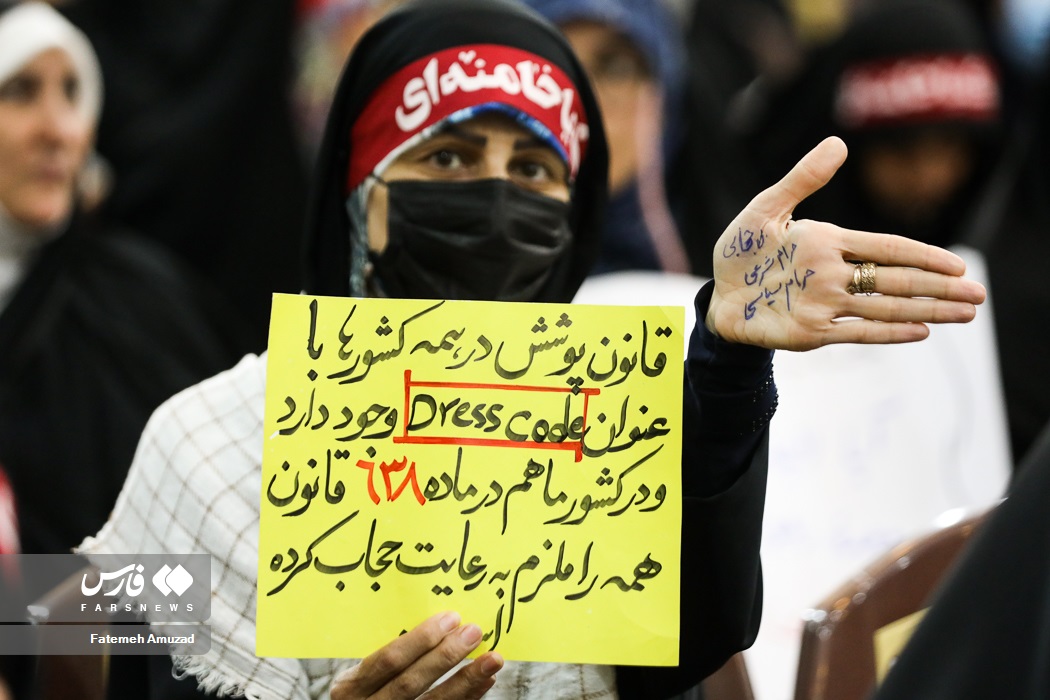 خامنه‌ای
قانون پوشش در همه کشورها با
عنوان Dress code وجود دارد
و در کشور ما هم در ماده ۶۳۸ قانون
همه را ملزم به رعایت حجاب کرده
بی‌حجابی
حرام شرعی
حرام سیاسی
فارس
FARSNEWS
Fatemeh Amuzad